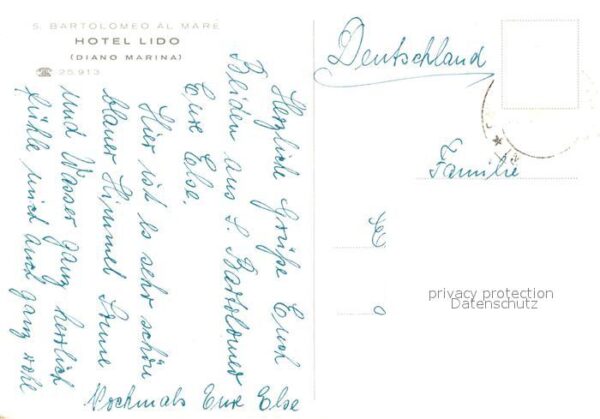 S. BARTOLOMEO AL MARE
HOTEL LIDO
(DIANO MARINA)
☎ 25.913
Herzliche Grüße Euch
Beiden aus S. Bartolomeo
Eure Else.
Hier ist es sehr schön
blauer Himmel Sonne
und Wasser ganz herrlich
fühle mich auch ganz wohl
Nochmals Eure Else
Deutschland
Familie
E
o
privacy protection
Datenschutz